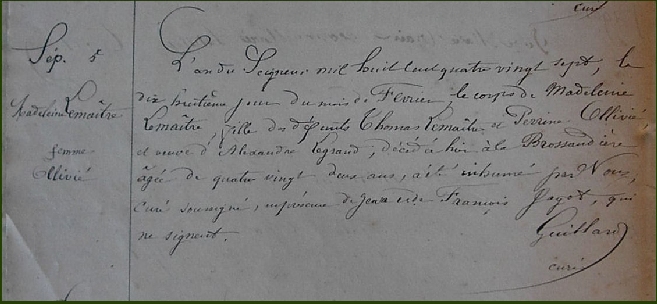 curé
Sép. 5
Madeleine Lemaître
femme
Ollivié
L'an du Seigneur mil huit cent quatre vingt sept, le
dix huitième jour du mois de Février, le corps de Madeleine
Lemaître, fille des défunts Thomas Lemaître et Perrine Ollivié,
et veuve d'Alexandre Legrand, décédée hier à la Brossardière
âgée de quatre vingt deux ans, a été inhumé par Nous,
curé soussigné, en présence de Jean et de François Pagot, qui
ne signent.
Guillard
curé